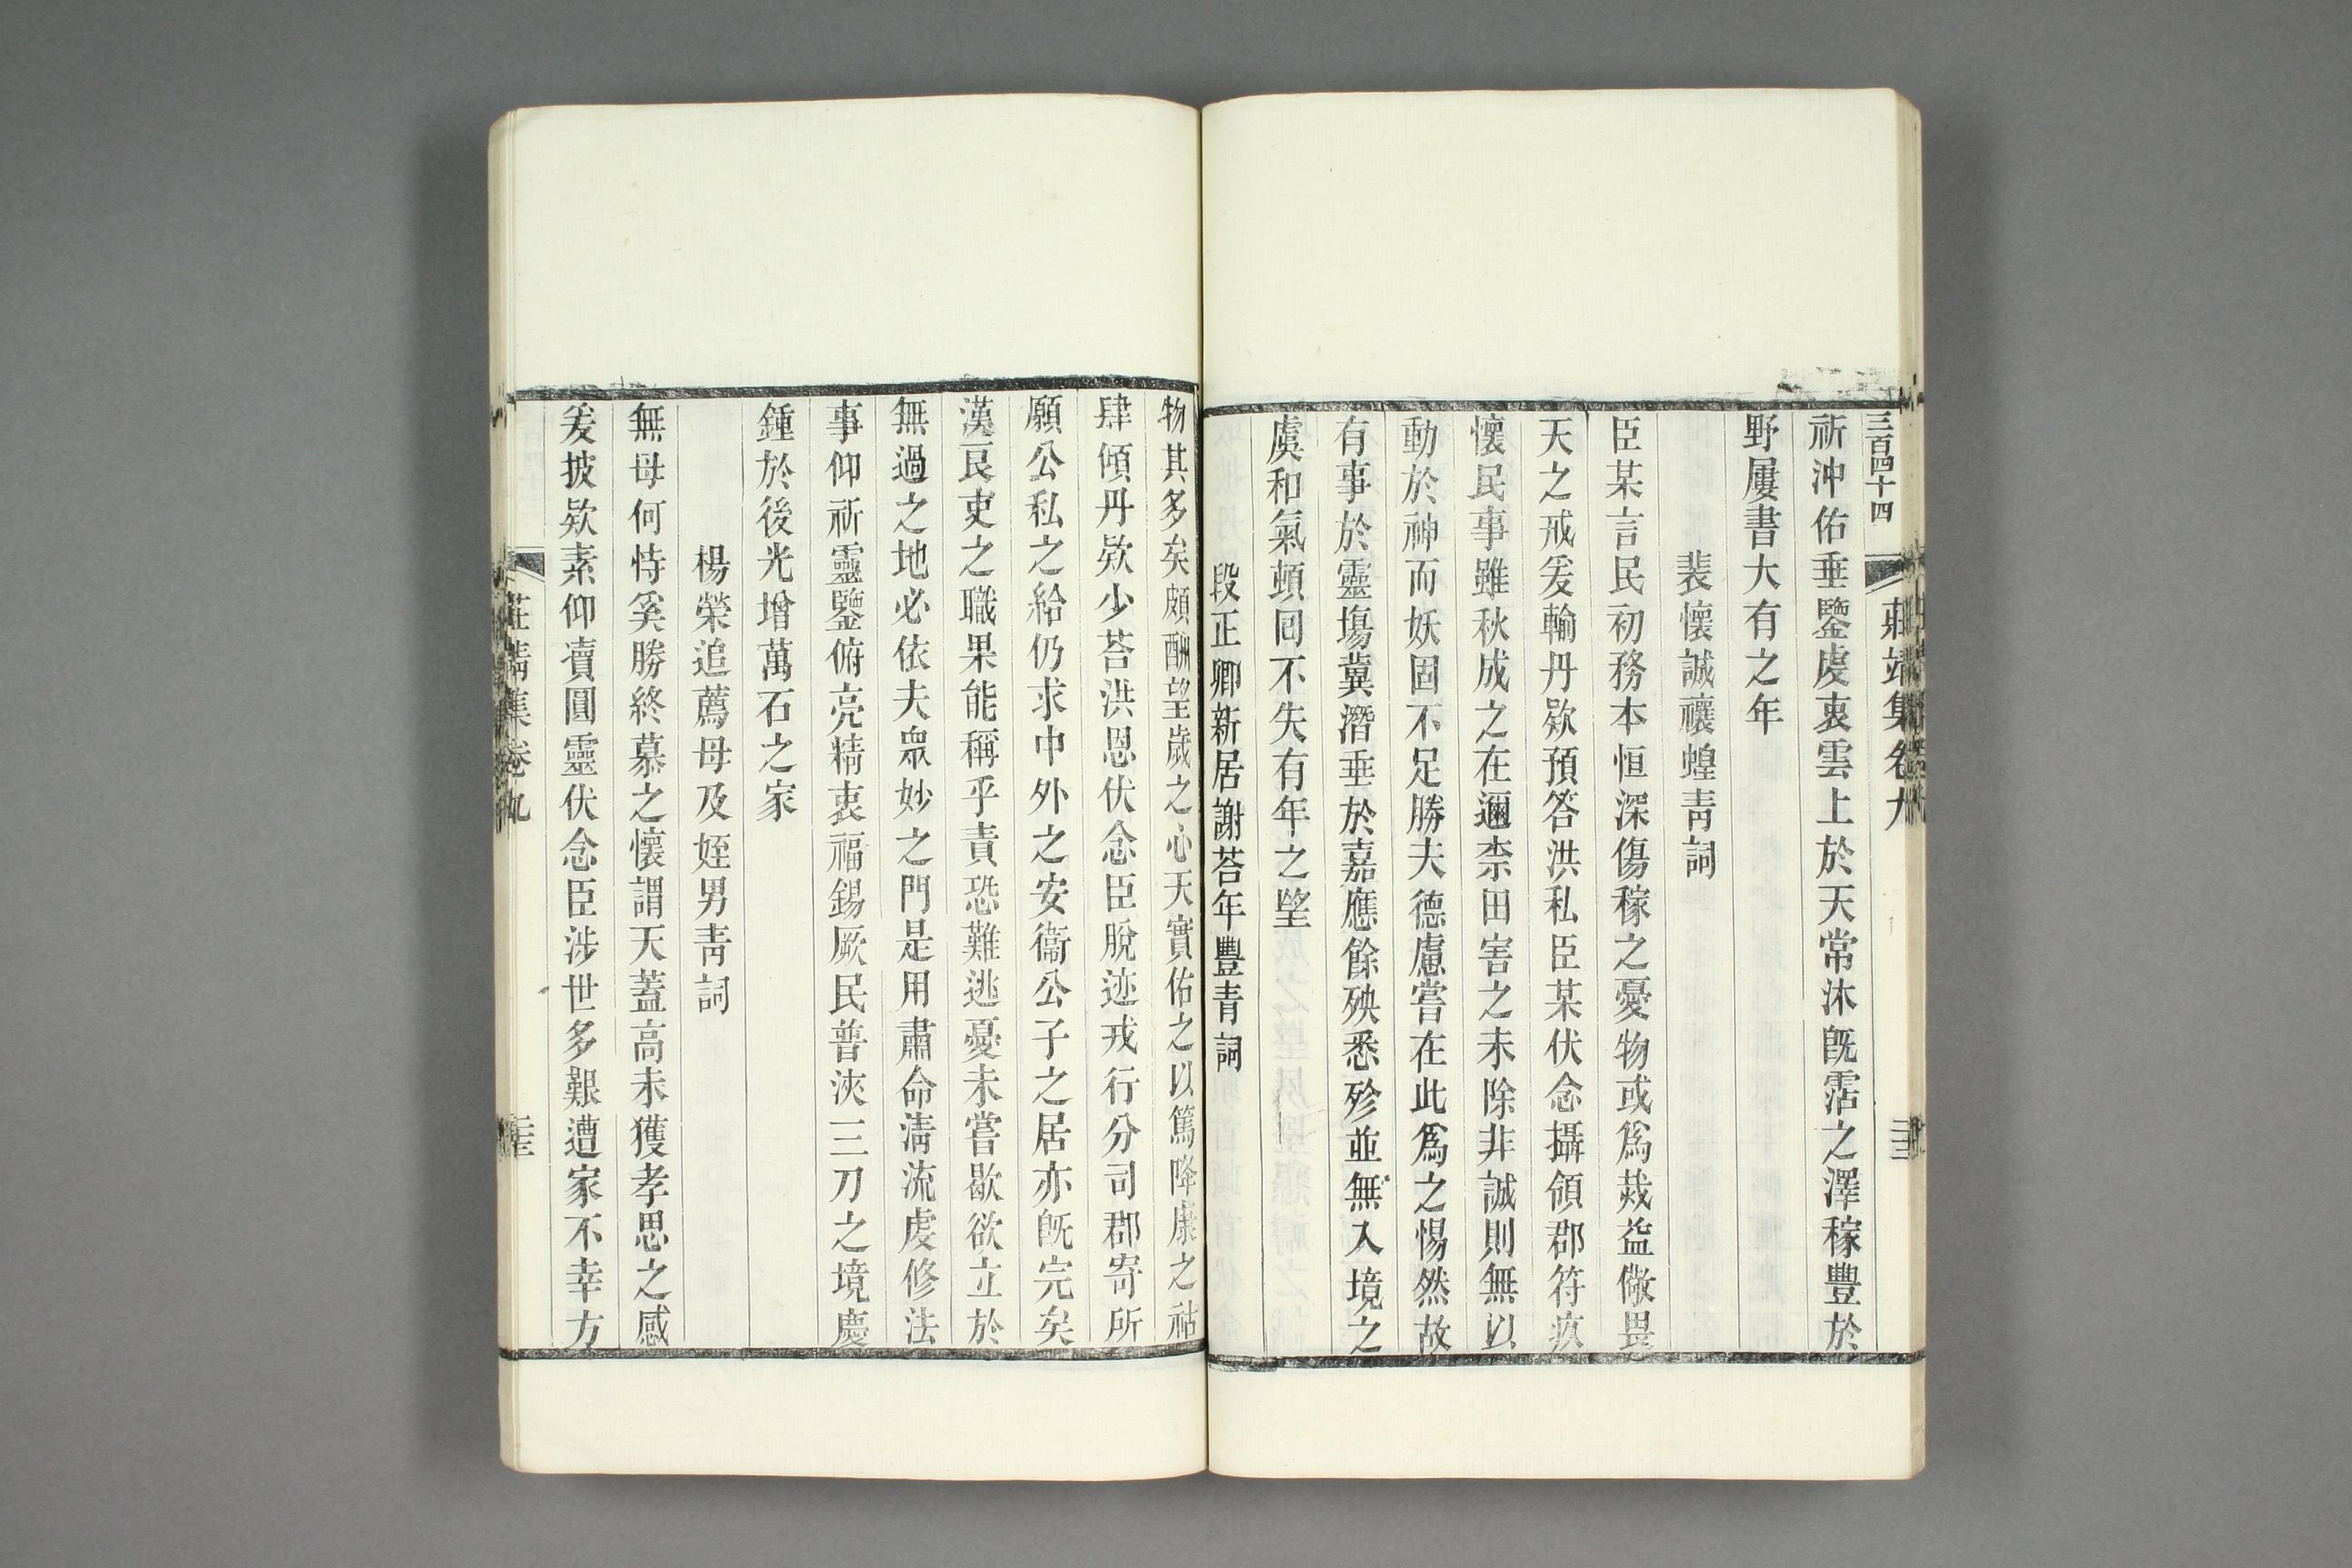 三百四十四
莊靖集卷九
祈沖佑垂鑒虔衷雲上於天常沐旣霑之澤稼豐於
野屢書大有之年
裴懷誠禳蝗靑詞
臣某言民初務本恒深傷稼之憂物或爲烖益儆畏
天之戒爰輸丹欵預答洪私臣某伏念攝領郡符疚
懷民事雖秋成之在邇柰田害之未除非誠則無以
動於神而妖固不足勝夫德慮嘗在此爲之惕然故
有事於靈塲冀潛垂於嘉應餘殃悉殄並無入境之
虞和氣頓回不失有年之望
段正卿新居謝荅年豐青詞
物其多矣頗酬望歲之心天實佑之以篤降康之祜
肆傾丹欵少荅洪恩伏念臣脫迹戎行分司郡寄所
願公私之給仍求中外之安衞公子之居亦旣完矣
漢良吏之職果能稱乎責恐難逃憂未嘗歇欲立於
無過之地必依夫衆妙之門是用肅命淸流虔修法
事仰祈靈鑒俯亮精衷福錫厥民普浹三刀之境慶
鍾於後光增萬石之家
楊榮追薦母及姪男靑詞
無母何恃奚勝終慕之懷謂天蓋高未獲孝思之感
爰披欵素仰瀆圓靈伏念臣涉世多艱遭家不幸方
莊靖集卷九